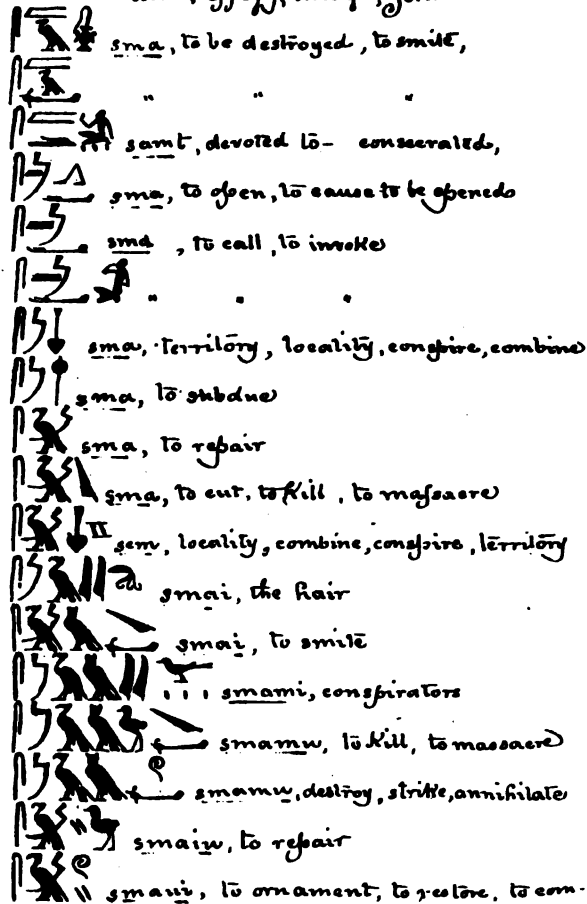 sma, to be destroyed, to smite,
" " "
samt, devoted to- consecrated,
sma, to open, to cause to be opened
sma, to call, to invoke
" " "
sma, territory, locality, conspire, combine
sma, to subdue
sma, to repair
sma, to cut, to kill, to massacre
sem, locality, combine, conspire, territory
smai, the hair
smai, to smite
smami, conspirators
smamu, to kill, to massacre
smamu, destroy, strike, annihilate
smaiu, to repair
smaui, to ornament, to restore, to com-